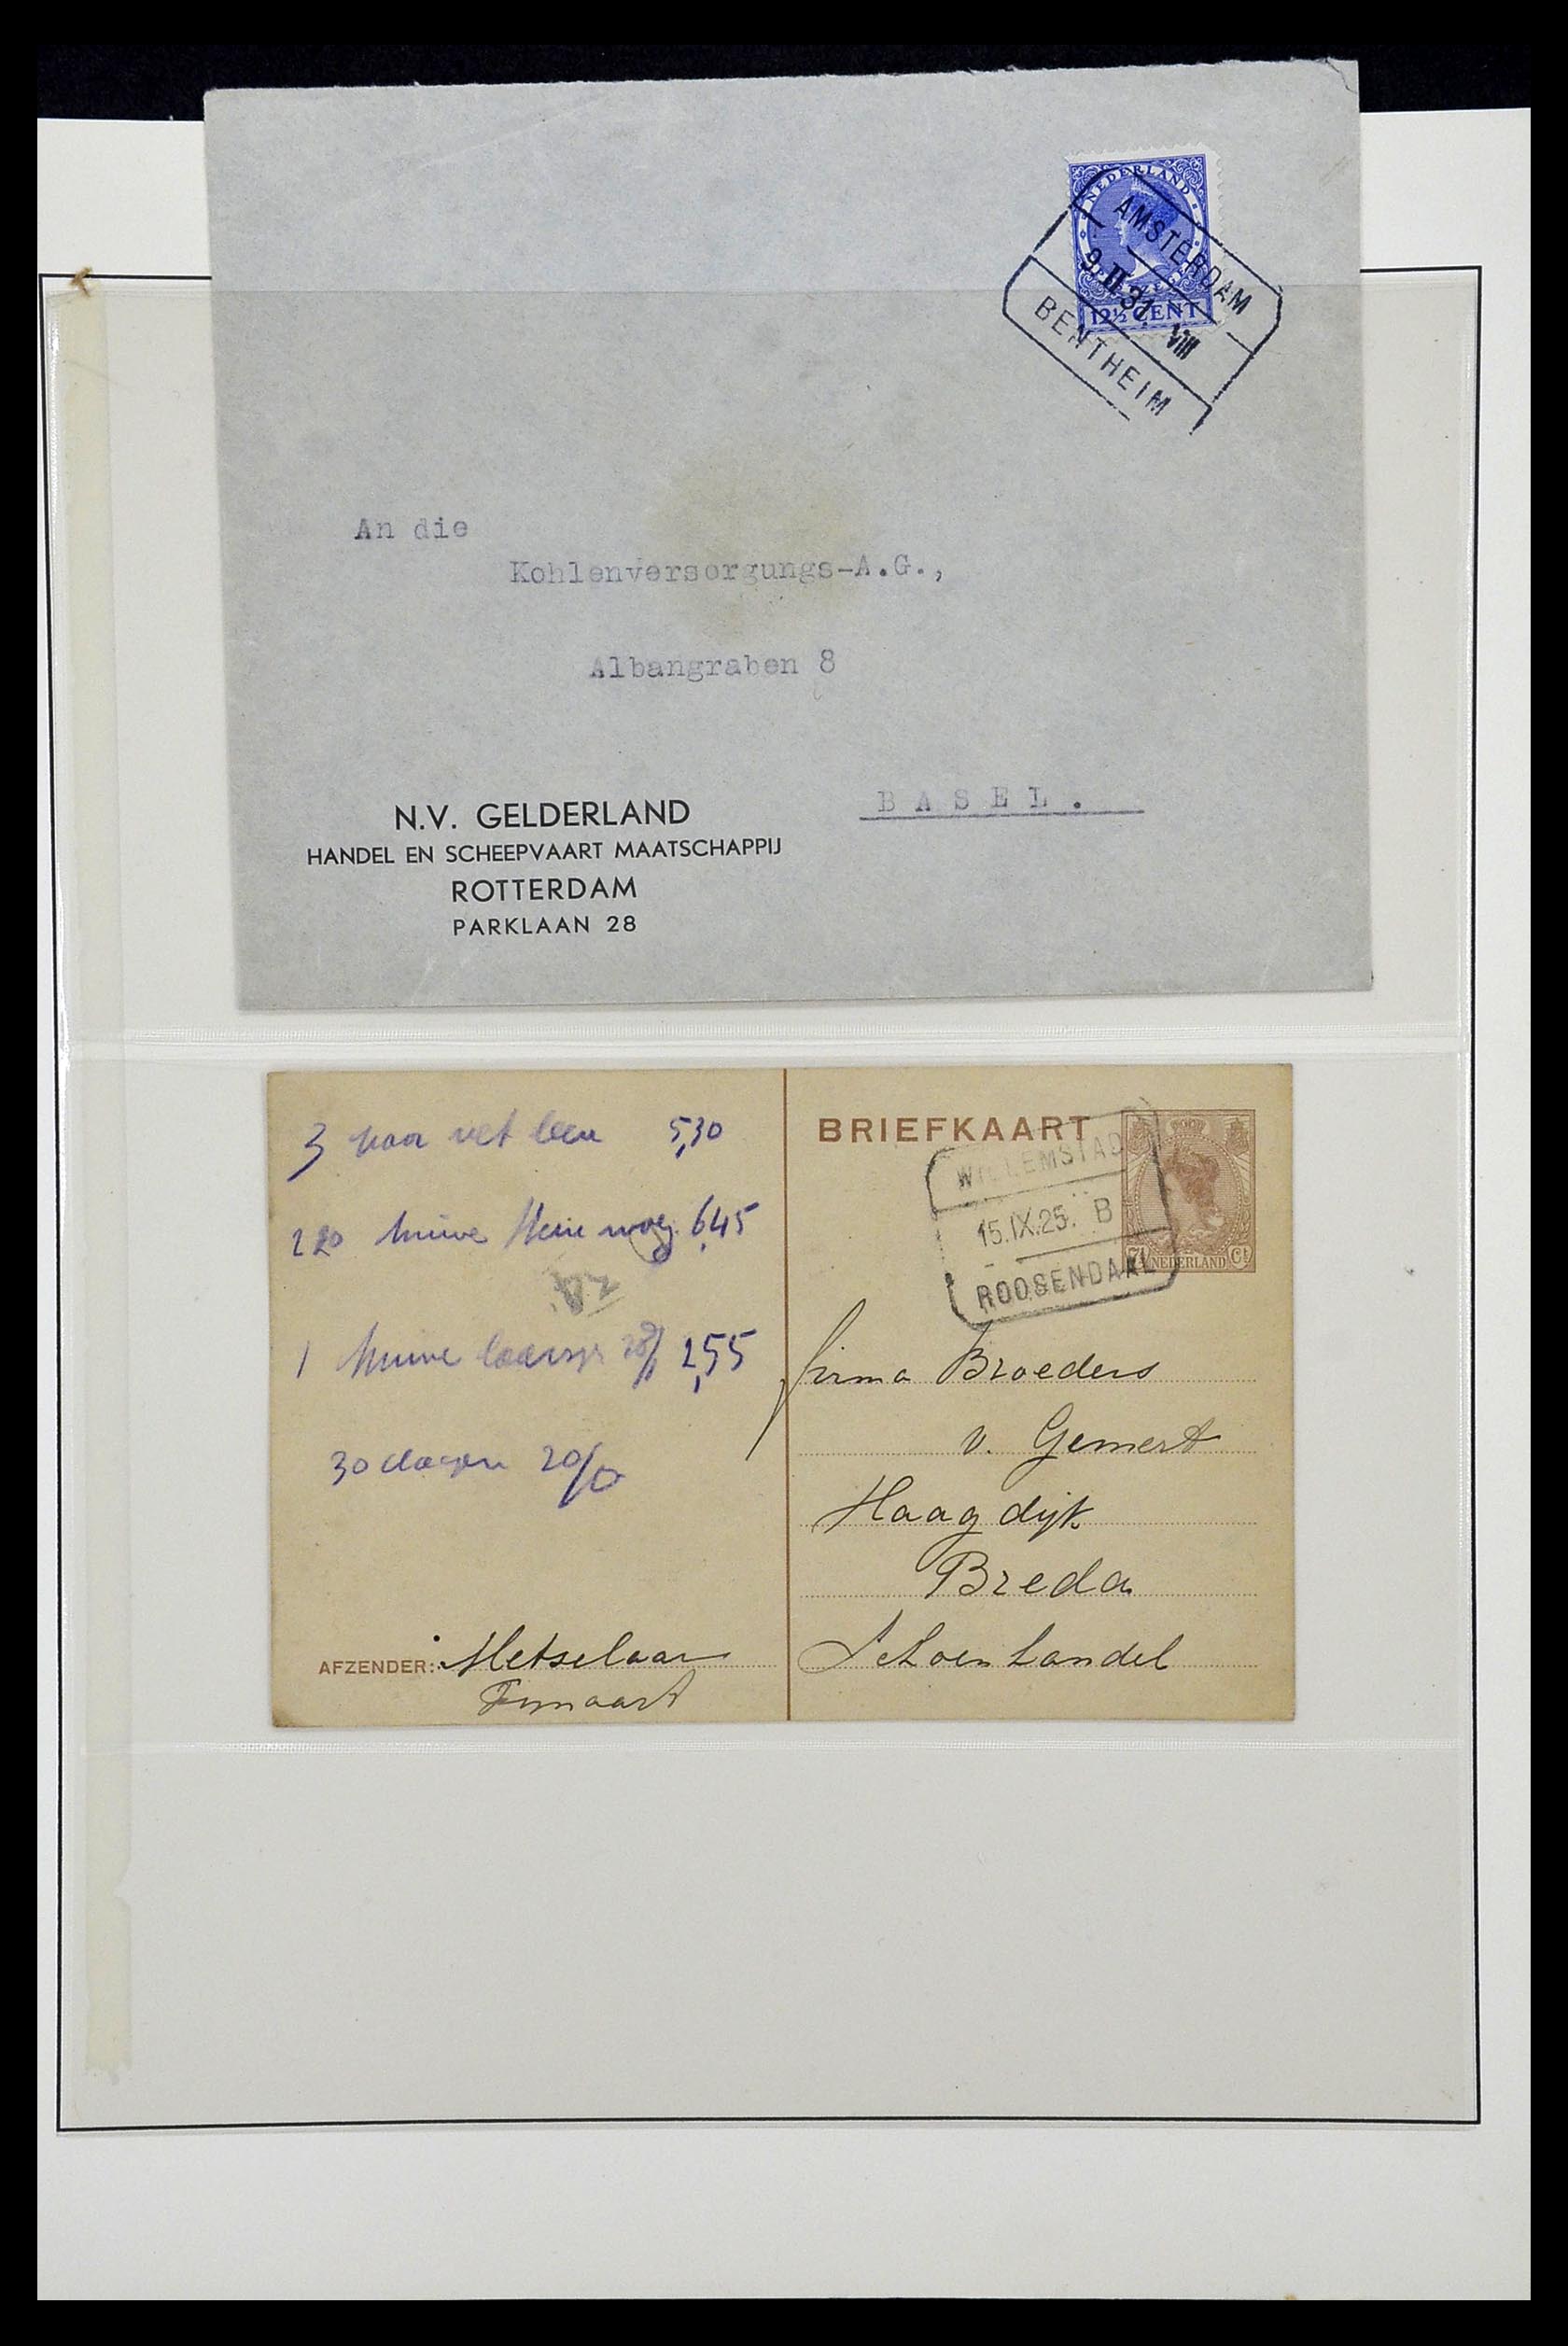 NEDERLAND
12½ CENT
AMSTERDAM
9.II.31. VIII
BENTHEIM
An die
Kohlenversorgungs-A.G.,
Albangraben 8
BASEL.
N.V. GELDERLAND
HANDEL EN SCHEEPVAART MAATSCHAPPIJ
ROTTERDAM
PARKLAAN 28
3 paar vet leer 5,30
6,45
1 2,55
30 dagen
AFZENDER: Metselaar
Fijnaart
BRIEFKAART
WILLEMSTAD
15.IX.25. B
ROOSENDAAL
7½ NEDERLAND Ct
firma Broeders
v. Gemert
Haagdijk
Breda
Schoenhandel